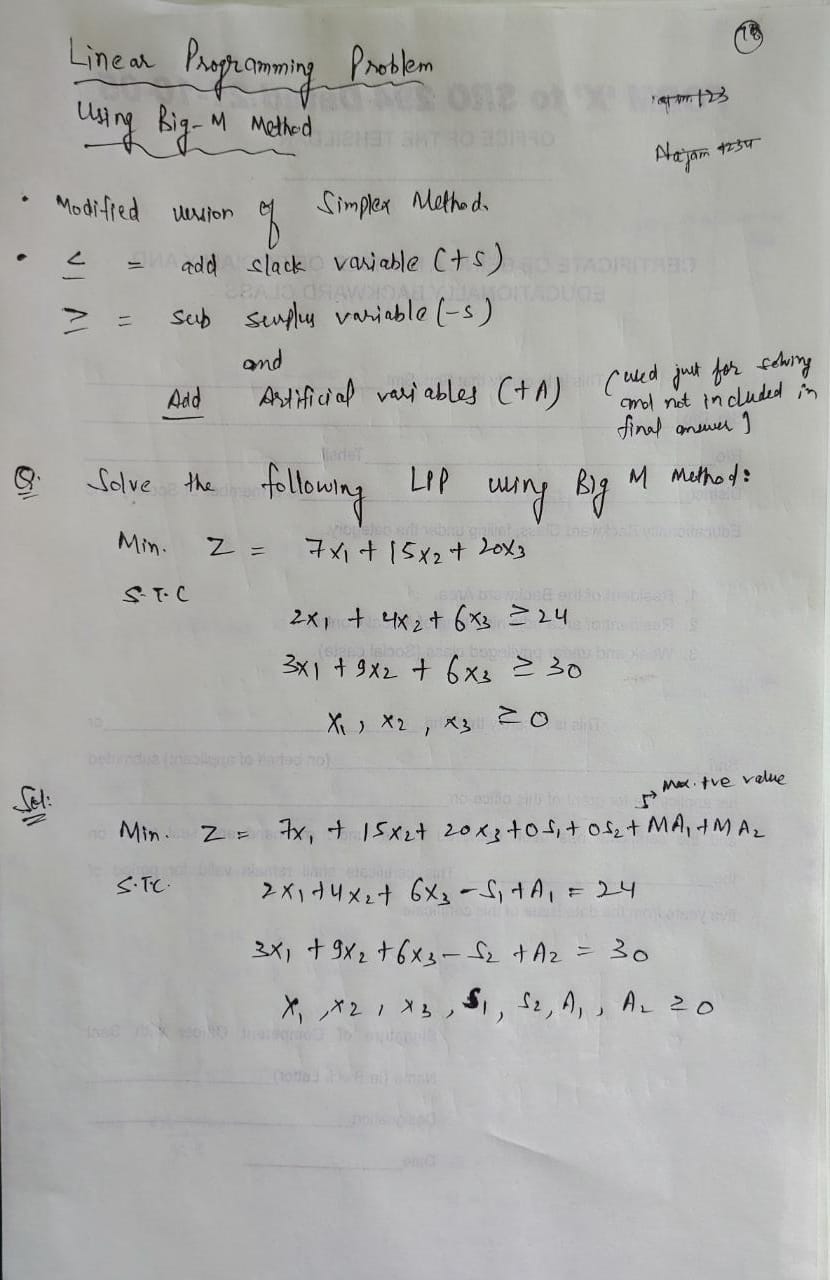 18
Linear Programming Problem
Using Big-M Method
Najam 1234
• Modified version of Simplex Method.
• ≤ = add slack variable (+s)
≥ = sub surplus variable (-s)
and
Add Artificial variables (+A) (used just for solving
and not included in
final answer]
Q. Solve the following LPP using Big M Method:
Min. Z = 7x₁ + 15x₂ + 20x₃
S.T.C
2x₁ + 4x₂ + 6x₃ ≥ 24
3x₁ + 9x₂ + 6x₃ ≥ 30
x₁, x₂, x₃ ≥ 0
Sol:
→ Max. +ve value
Min. Z = 7x₁ + 15x₂ + 20x₃ + 0S₁ + 0S₂ + MA₁ + MA₂
S.T.C.
2x₁ + 4x₂ + 6x₃ - S₁ + A₁ = 24
3x₁ + 9x₂ + 6x₃ - S₂ + A₂ = 30
x₁, x₂, x₃, S₁, S₂, A₁, A₂ ≥ 0